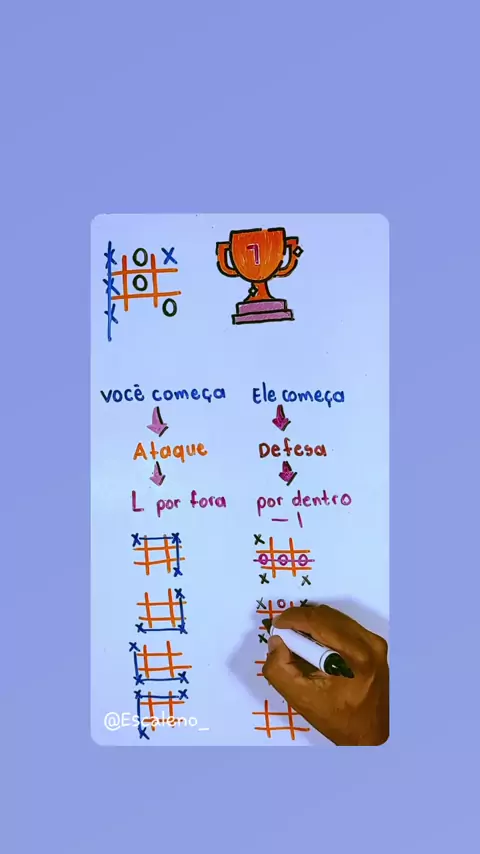 X O X
X O
X O
1
você começa
Ataque
L por fora
Ele começa
Defesa
por dentro
— |
X X
X
X
X X
X
X X
X X
X
X
O O O
X X
X O X
X
@Escaleno_